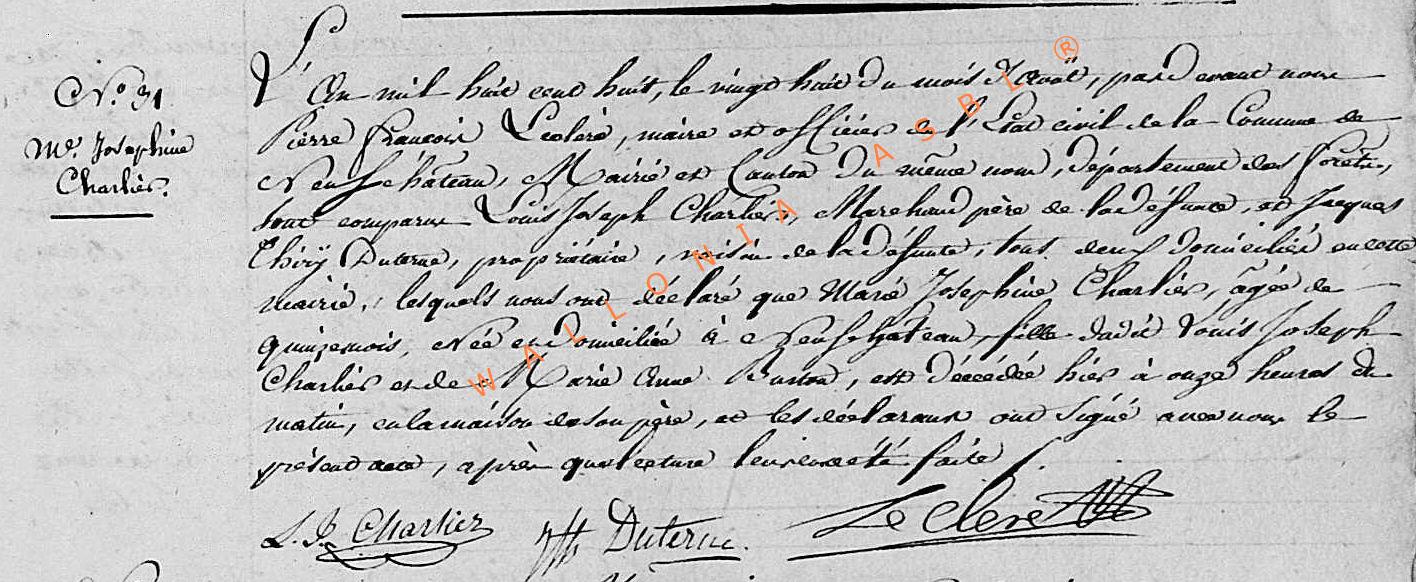 N.° 31
M.e Josephine
Charlier.
L'An mil huit cent huit, le vingt huit du mois d'août, pardevant nous
Pierre François Leclerc, maire et officier de l'Etat civil de la Commune de
Neufchâteau, Mairie et Canton du même nom, département des forêts,
sont comparus Louis Joseph Charlier, Marchand père de la défunte, et Jacques
Thiry Duterne, propriétaire, voisin de la défunte, tous deux domiciliés en cette
mairie, lesquels nous ont déclaré que Marie Josephine Charlier, agée de
quinze mois, Née et domiciliée à Neufchâteau, fille dudit Louis Joseph
Charlier et de Marie Anne, est décédée hier à onze heures du
matin, en la maison de son père, et les déclarans ont signé avec nous le
présent acte, après que lecture leur en eut été faite
L. J. Charlier Duterne. Leclerc
WALLONIA ASBL ®